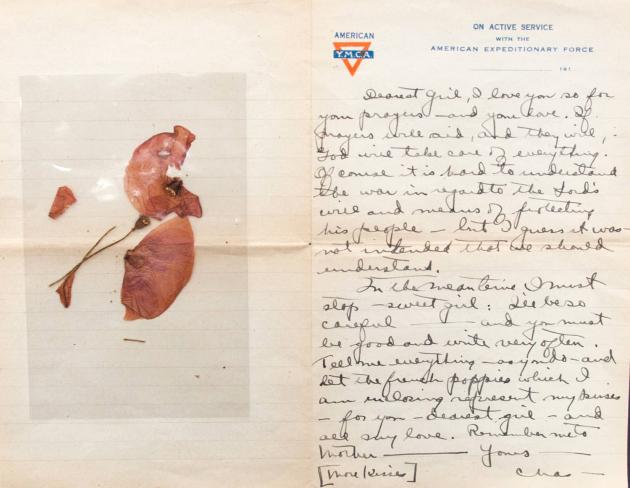 AMERICAN
Y.M.C.A.
ON ACTIVE SERVICE
WITH THE
AMERICAN EXPEDITIONARY FORCE
191
Dearest Girl, I love you so for
your prayers – and your love. If
prayers will aid, and they will,
God will take care of everything.
Of course it is hard to understand
the war in regard to the Lord's
will and means of protecting
his people – but I guess it was
not intended that we should
understand.
In the meantime I must
stop – sweet girl: I'll be so
careful — and you must
be good and write very often.
Tell me everything – as you do – and
let the french poppies which I
am enclosing represent my kisses
– for you – dearest girl – and
all my love. Remember me to
Mother — Yours —
[More Kisses] Chas —